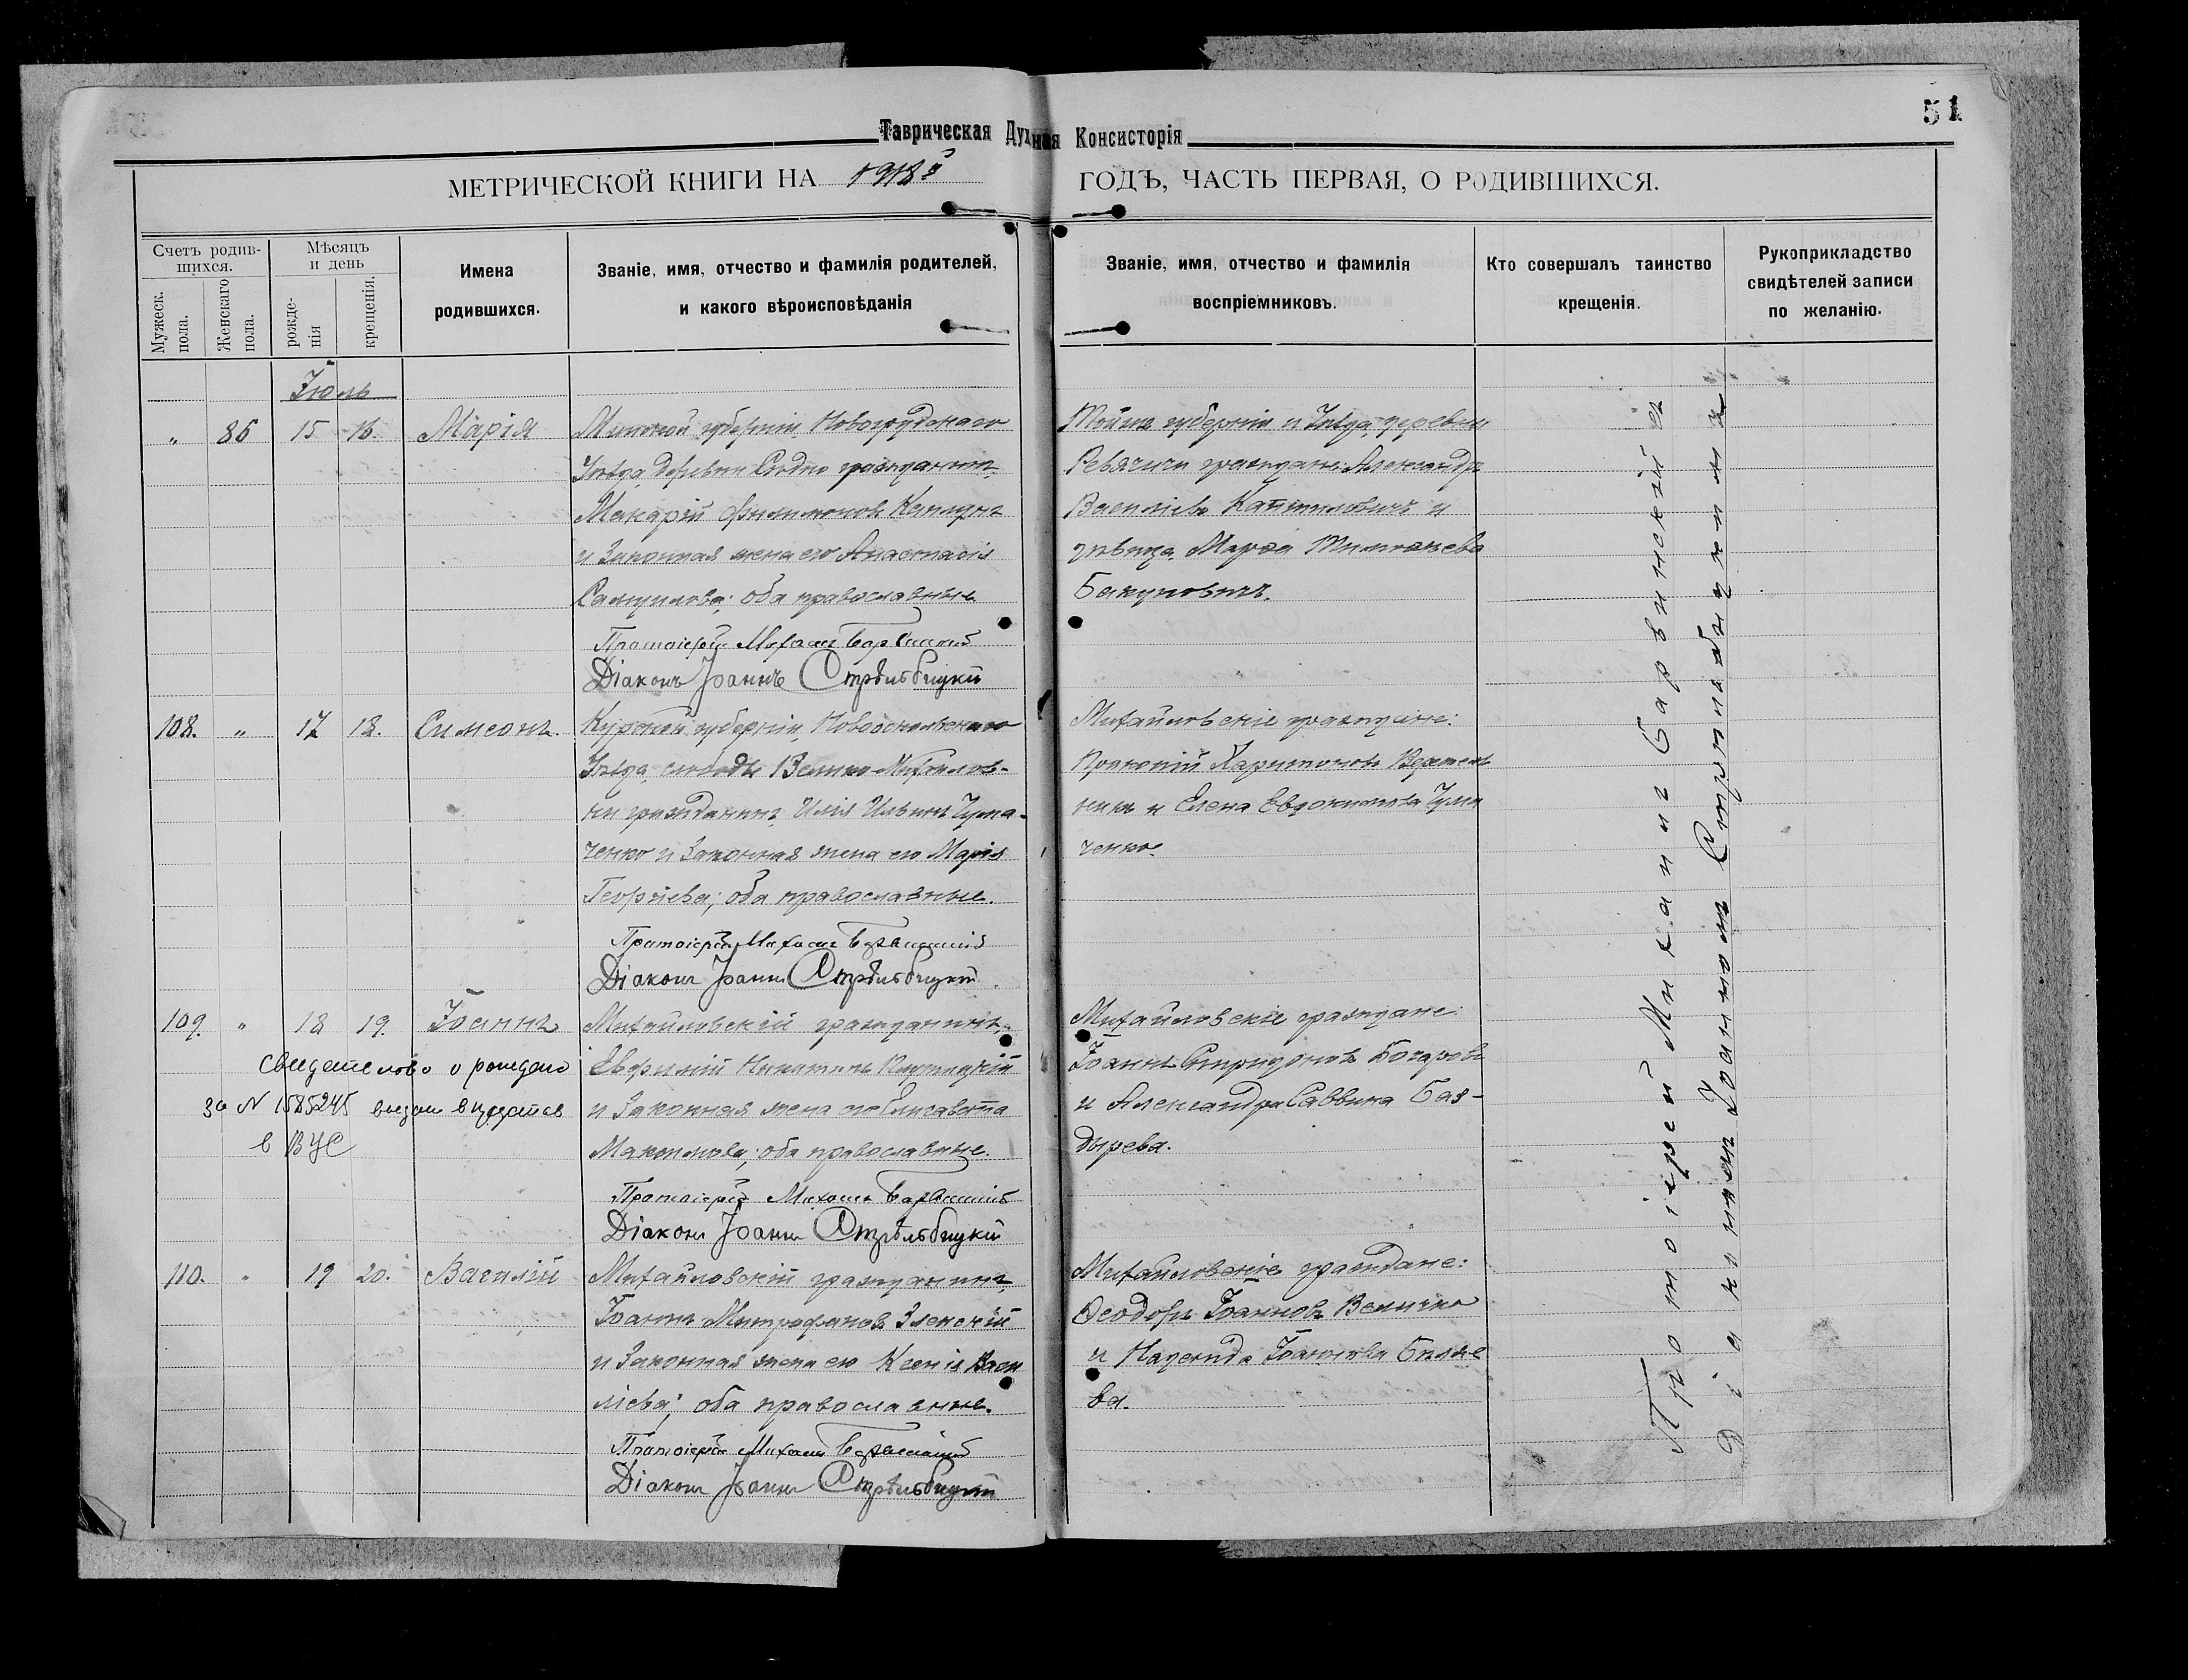 51
Таврическая Духная Консисторія
МЕТРИЧЕСКОЙ КНИГИ НА 1918й ГОДЪ, ЧАСТЬ ПЕРВАЯ, О РОДИВШИХСЯ.
Счетъ родив-
шихся.
Мужеск.
пола.
Женскаго
пола.
Мѣсяцъ
и день
рожде-
нія
крещенія.
Имена
родившихся.
Званіе, имя, отчество и фамилія родителей,
и какого вѣроисповѣданія
Званіе, имя, отчество и фамилія
воспріемниковъ.
Кто совершалъ таинство
крещенія.
Рукоприкладство
свидѣтелей записи
по желанію.
Іюль
" 86 15 16. Марія
Минской губерніи, Новогрудскаго
Уѣзда, деревни гражданинъ
Макарій Филимоновъ
и Законная жена его Анастасія
Самуилова; оба православные
Протоіерей Михаилъ Барвинскій
Діаконъ Іоаннъ Стрѣльбицкій
Той же губерніи и Уѣзда, деревни
граждане: Александръ
Васильевъ и
дѣвица Марѳа
108. " 17 18. Симеонъ.
Курской губерніи, Новооскольскаго
Уѣзда, слободы Велико-Михайлов-
ки гражданинъ, Илія Ильинъ Чума-
ченко и Законная жена его Марія
Георгіева; оба православные.
Протоіерей Михаилъ Барвинскій
Діаконъ Іоаннъ Стрѣльбицкій
Михайловскіе граждане:
Прокопій Харитоновъ
и Елена Евдокимова Чума
ченко.
109. " 18 19. Іоаннъ
Свидетелство о рожден
за N 1585245
в ВУС
Михайловскій гражданинъ,
Евфимій Никитинъ
и Законная жена его Елисавета
Максимова; оба православные.
Протоіерей Михаилъ Барвинскій
Діаконъ Іоаннъ Стрѣльбицкій
Михайловскіе граждане:
Іоаннъ Спиридоновъ Бочаровъ
и Александра Саввина Баз-
дырева.
110. " 19 20. Василій
Михайловскій гражданинъ,
Іоаннъ Митрофановъ Зленскій
и Законная жена его Ксенія Васи
ліева; оба православные.
Протоіерей Михаилъ Барвинскій
Діаконъ Іоаннъ Стрѣльбицкій
Михайловскіе граждане:
Ѳеодоръ Іоанновъ Величко
и Надежда Іоаннова Бѣляе
ва.
Протоіерей Михаилъ Барвинскій съ
Діакономъ Іоанномъ Стрѣльбицкимъ